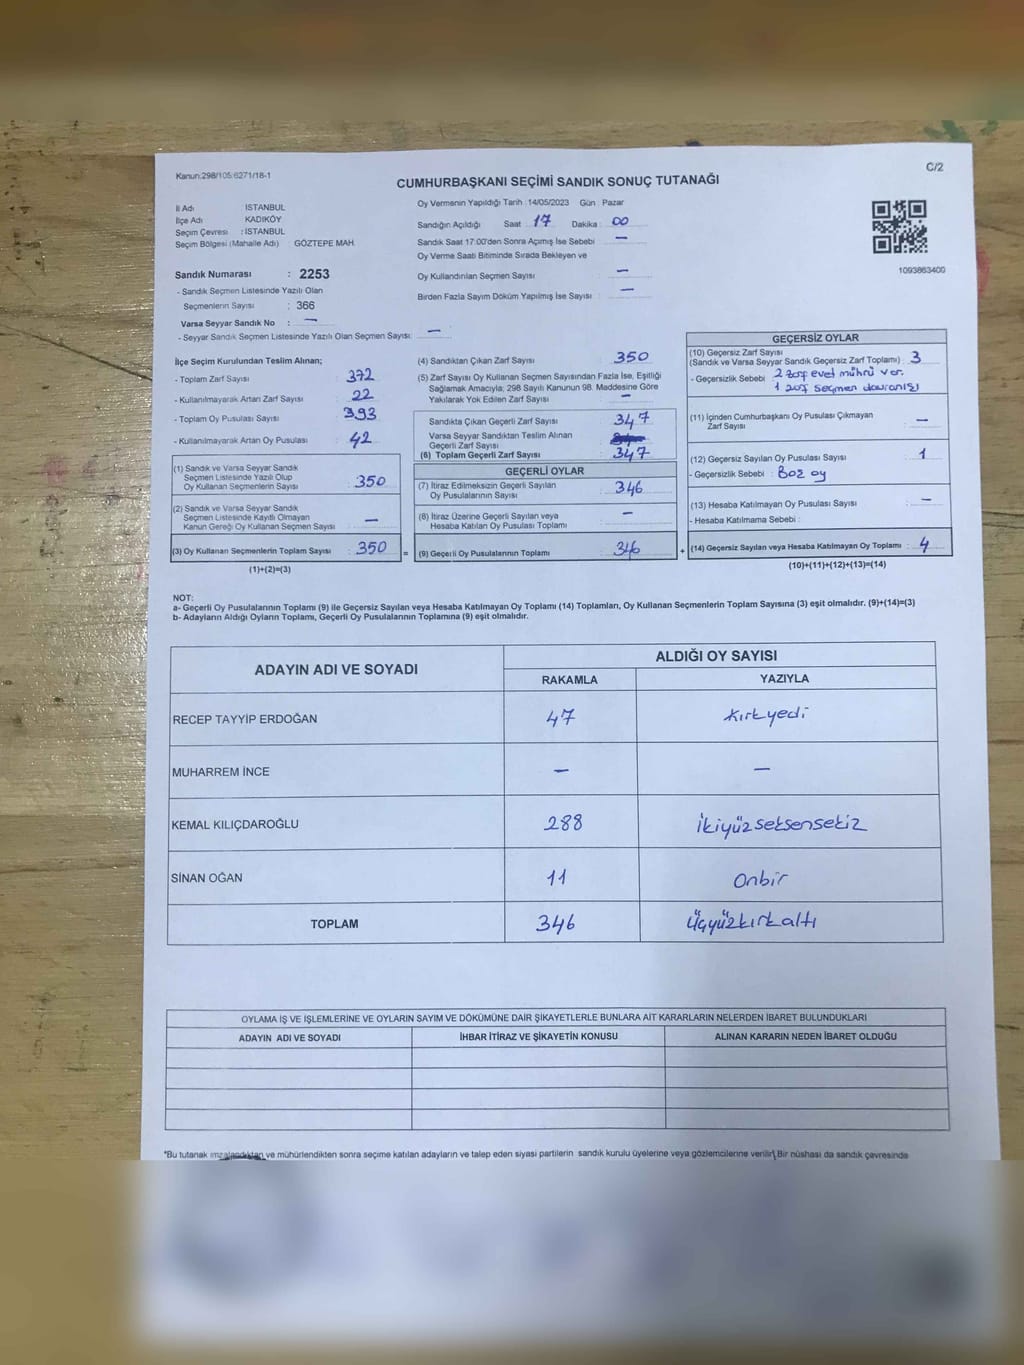 Kanun:298/105:6271/18-1
C/2
CUMHURBAŞKANI SEÇİMİ SANDIK SONUÇ TUTANAĞI
İl Adı : İSTANBUL
İlçe Adı : KADIKÖY
Seçim Çevresi : İSTANBUL
Seçim Bölgesi (Mahalle Adı) : GÖZTEPE MAH.
Sandık Numarası : 2253
- Sandık Seçmen Listesinde Yazılı Olan
Seçmenlerin Sayısı : 366
Varsa Seyyar Sandık No : —
- Seyyar Sandık Seçmen Listesinde Yazılı Olan Seçmen Sayısı: —
Oy Vermenin Yapıldığı Tarih :14/05/2023 Gün : Pazar
Sandığın Açıldığı Saat : 17 Dakika : 00
Sandık Saat 17:00'den Sonra Açımış İse Sebebi : —
Oy Verme Saati Bitiminde Sırada Bekleyen ve
Oy Kullandırılan Seçmen Sayısı : —
Birden Fazla Sayım Döküm Yapılmış İse Sayısı : —
1093863400
İlçe Seçim Kurulundan Teslim Alınan;
- Toplam Zarf Sayısı : 372
- Kullanılmayarak Artan Zarf Sayısı : 22
- Toplam Oy Pusulası Sayısı : 393
- Kullanılmayarak Artan Oy Pusulası : 42
(1) Sandık ve Varsa Seyyar Sandık
Seçmen Listesinde Yazılı Olup
Oy Kullanan Seçmenlerin Sayısı : 350
(2) Sandık ve Varsa Seyyar Sandık
Seçmen Listesinde Kayıtlı Olmayan
Kanun Gereği Oy Kullanan Seçmen Sayısı : —
(3) Oy Kullanan Seçmenlerin Toplam Sayısı : 350 =
(1)+(2)=(3)
(4) Sandıktan Çıkan Zarf Sayısı : 350
(5) Zarf Sayısı Oy Kullanan Seçmen Sayısından Fazla İse, Eşitliği
Sağlamak Amacıyla; 298 Sayılı Kanunun 98. Maddesine Göre
Yakılarak Yok Edilen Zarf Sayısı : —
Sandıkta Çıkan Geçerli Zarf Sayısı : 347
Varsa Seyyar Sandıktan Teslim Alınan
Geçerli Zarf Sayısı
(6) Toplam Geçerli Zarf Sayısı : 347
GEÇERLİ OYLAR
(7) İtiraz Edilmeksizin Geçerli Sayılan
Oy Pusulalarının Sayısı : 346
(8) İtiraz Üzerine Geçerli Sayılan veya
Hesaba Katılan Oy Pusulası Toplamı : —
(9) Geçerli Oy Pusulalarının Toplamı : 346 +
GEÇERSİZ OYLAR
(10) Geçersiz Zarf Sayısı
(Sandık ve Varsa Seyyar Sandık Geçersiz Zarf Toplamı) : 3
- Geçersizlik Sebebi : 2 zarf evet mührü var.
1 zarf seçmen davranışı
(11) İçinden Cumhurbaşkanı Oy Pusulası Çıkmayan
Zarf Sayısı : —
(12) Geçersiz Sayılan Oy Pusulası Sayısı : 1
- Geçersizlik Sebebi : Boş oy
(13) Hesaba Katılmayan Oy Pusulası Sayısı : —
- Hesaba Katılmama Sebebi :
(14) Geçersiz Sayılan veya Hesaba Katılmayan Oy Toplamı : 4
(10)+(11)+(12)+(13)=(14)
NOT:
a- Geçerli Oy Pusulalarının Toplamı (9) ile Geçersiz Sayılan veya Hesaba Katılmayan Oy Toplamı (14) Toplamları, Oy Kullanan Seçmenlerin Toplam Sayısına (3) eşit olmalıdır. (9)+(14)=(3)
b- Adayların Aldığı Oyların Toplamı, Geçerli Oy Pusulalarının Toplamına (9) eşit olmalıdır.
ADAYIN ADI VE SOYADI
ALDIĞI OY SAYISI
RAKAMLA YAZIYLA
RECEP TAYYİP ERDOĞAN 47 kırkyedi
MUHARREM İNCE — —
KEMAL KILIÇDAROĞLU 288 ikiyüzseksensekiz
SİNAN OĞAN 11 Onbir
TOPLAM 346 Üçyüzkırkaltı
OYLAMA İŞ VE İŞLEMLERİNE VE OYLARIN SAYIM VE DÖKÜMÜNE DAİR ŞİKAYETLERLE BUNLARA AİT KARARLARIN NELERDEN İBARET BULUNDUKLARI
ADAYIN ADI VE SOYADI İHBAR İTİRAZ VE ŞİKAYETİN KONUSU ALINAN KARARIN NEDEN İBARET OLDUĞU
*Bu tutanak imzalandıktan ve mühürlendikten sonra seçime katılan adayların ve talep eden siyasi partilerin sandık kurulu üyelerine veya gözlemcilerine verilir. Bir nüshası da sandık çevresinde